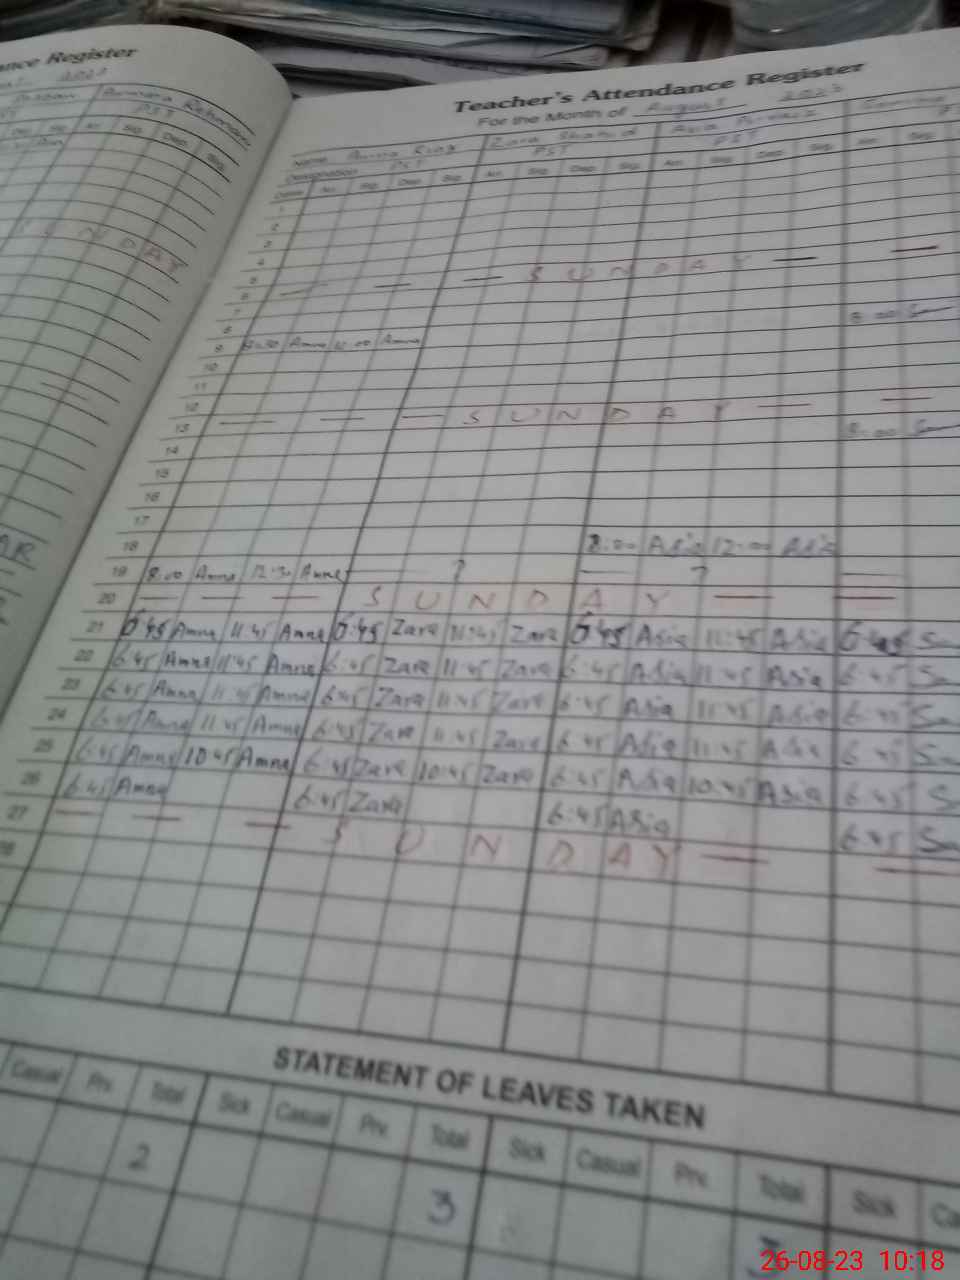 nce Register
Teacher's Attendance Register
For the Month of August 2023
Name Amna Riaz Zara Shahid Asia
Designation PST PST PST
Dates Arr. Sig. Dep. Sig. Arr. Sig. Dep. Sig. Arr. Sig. Dep. Sig.
1
2
3
4
5
6 SUNDAY
7
8 8:00
9 8:30 Amna 12:00 Amna
10
11
12
13 SUNDAY
14 8:00
15
16
17
18 8:00 Asia 12:00 Asia
19 8:00 Amna 12:30 Amna ? ?
20 SUNDAY
21 6:45 Amna 11:45 Amna 6:45 Zara 11:45 Zara 6:45 Asia 11:45 Asia 6:45
22 6:45 Amna 11:45 Amna 6:45 Zara 11:45 Zara 6:45 Asia 11:45 Asia 6:45
23 6:45 Amna 11:45 Amna 6:45 Zara 11:45 Zara 6:45 Asia 11:45 Asia 6:45
24 6:45 Amna 11:45 Amna 6:45 Zara 11:45 Zara 6:45 Asia 11:45 Asia 6:45
25 6:45 Amna 10:45 Amna 6:45 Zara 10:45 Zara 6:45 Asia 10:45 Asia 6:45
26 6:45 Amna 6:45 Zara 6:45 Asia 6:45
27 SUNDAY
STATEMENT OF LEAVES TAKEN
Casual Prv. Total Sick Casual Prv. Total Sick Casual Prv. Total Sick
2 3
26-08-23 10:18